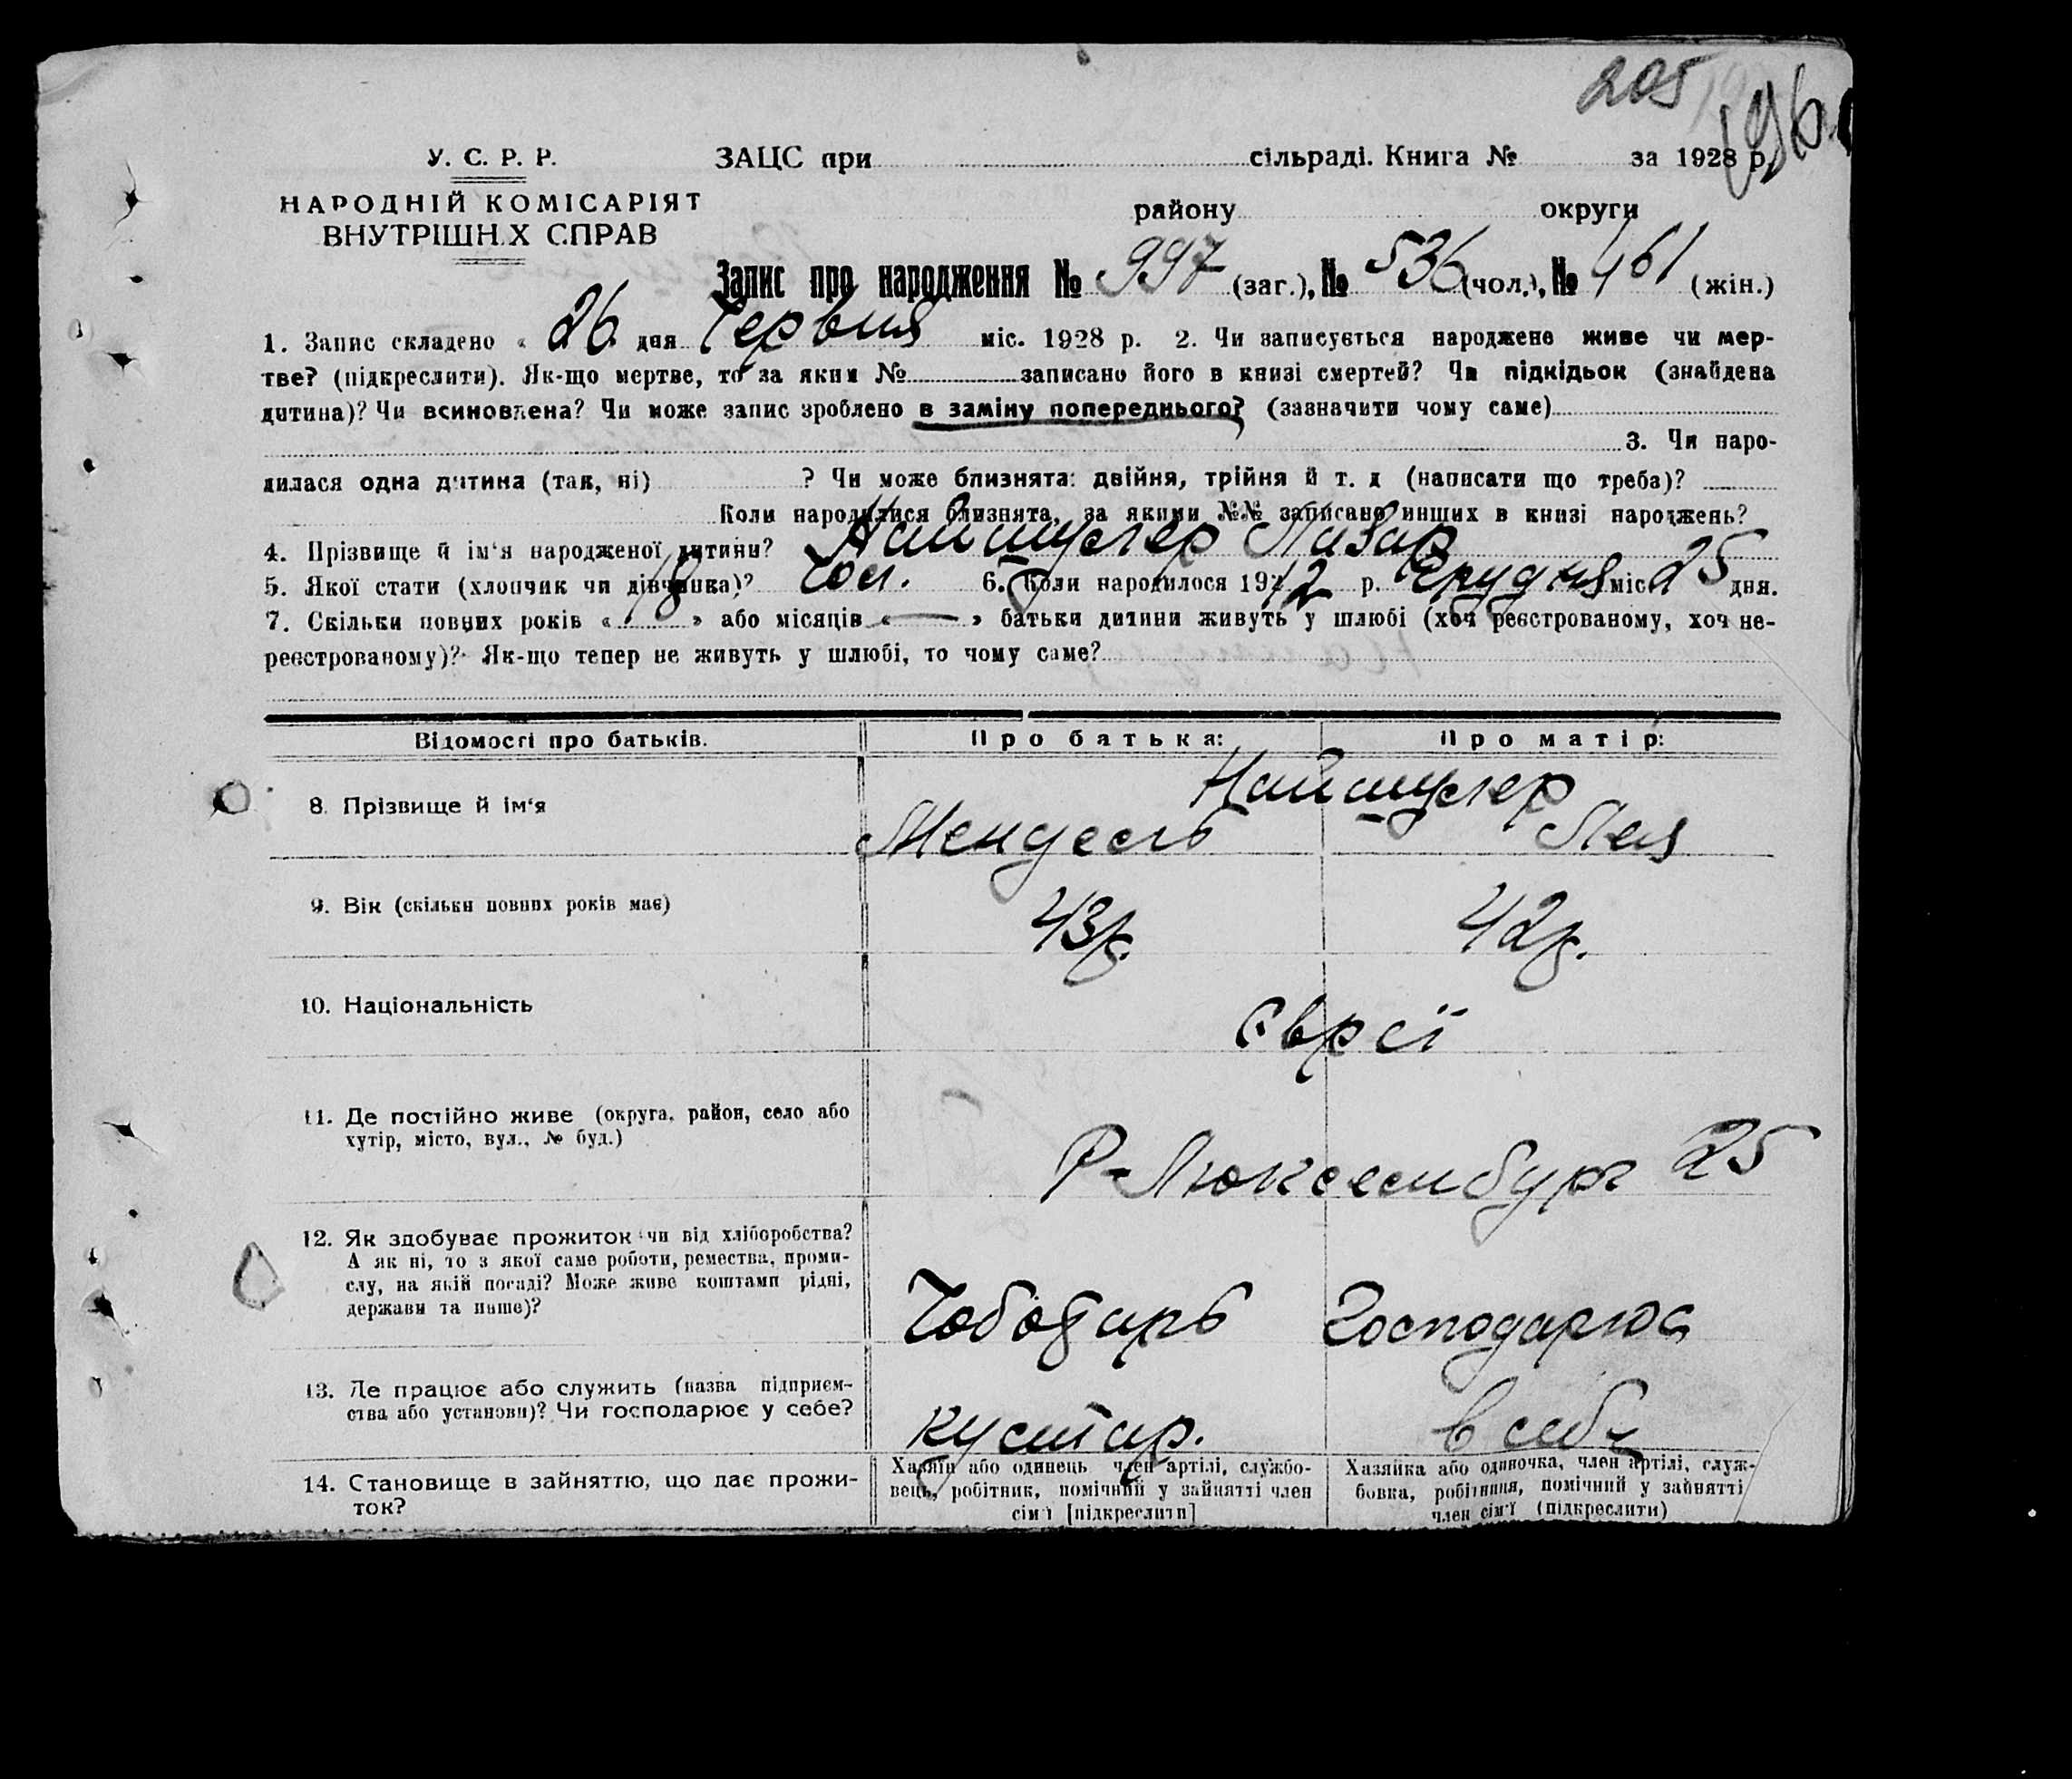 205
196
У. С. Р. Р. ЗАЦС при сільраді. Книга № за 1928 р.
НАРОДНІЙ КОМІСАРІЯТ району округи
ВНУТРІШН.Х СПРАВ
Запис про народження № 997 (заг.), № 536 (чол.), № 461 (жін.)
1. Запис складено « 26 дня Червня міс. 1928 р. 2. Чи записується народжене живе чи мер-
тве? (підкреслити). Як-що мертве, то за яким № записано його в книзі смертей? Чи підкідьок (знайдена
дитина)? Чи всиновлена? Чи може запис зроблено в заміну попереднього? (зазначити чому саме)
3. Чи наро-
дилася одна дитина (так, ні) ? Чи може близнята: двійня, трійня й т. д (написати що треба)?
Коли народилися близнята, за якими №№ записано инших в книзі народжень?
4. Прізвище й ім‘я народженої дитини? Найшулер Лазар
5. Якої стати (хлопчик чи дівчинка)? Чол. 6. Коли народилося 1912 р. Грудня міс 25 дня.
7. Скільки повних років « 18 » або місяців « — » батьки дитини живуть у шлюбі (хоч реєстрованому, хоч не-
реєстрованому)? Як-що тепер не живуть у шлюбі, то чому саме?
Відомості про батьків. Про батька: Про матір:
Найшулер
8. Прізвище й ім‘я Мендель Лея
9. Вік (скільки повних років має) 43р. 42р.
10. Національність Євреї
11. Де постійно живе (округа, район, село або
хутір, місто, вул., № буд.) Р-Люксембург 25
12. Як здобуває прожиток чи від хліборобства?
А як ні, то з якої саме роботи, ремества, проми-
слу, на якій посаді? Може живе коштами рідні,
держави та инше)? Чоботарь Господарює
13. Де працює або служить (назва підприєм-
ства або установи)? Чи господарює у себе? кустар. в себе
14. Становище в зайняттю, що дає прожи-
ток?
Хазяїн або одинець член артілі, службо-
вець, робітник, помічний у зайнятті член
сім‘ї [підкреслити]
Хазяйка або одиночка, член артілі, служ-
бовка, робітниця, помічний у зайнятті
член сім‘ї (підкреслити)